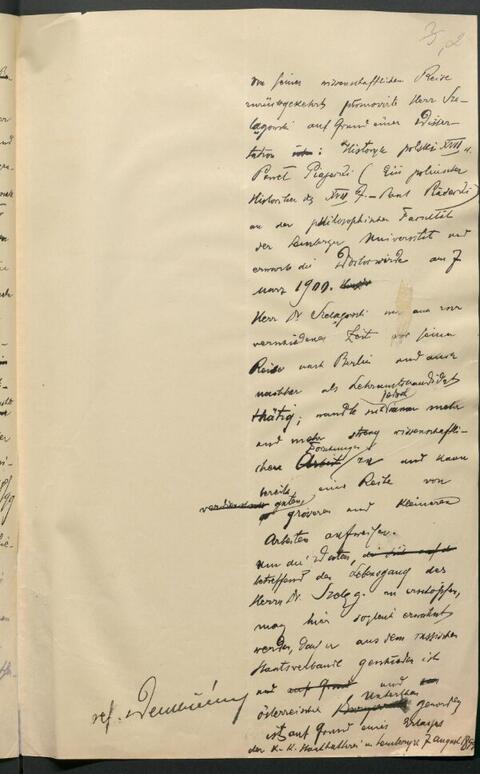 Von seiner wissenschaftlichen Reise
zurückgekehrt promovirte Herr Sze-
lągowski auf Grund einer Disser-
tation : "Historyk polski XVII w.
Paweł Piasecki (Ein polnischer
Historiker des XVII J. - Paul Piasecki)
an der philosophischen Facultät
der Lemberger Universität und
erwarb die Doctorwürde am 7
März 1900.
Herr Dr. Szelągowski war zwar
Zeit vor seiner
Reise nach Berlin und auch
nachher als Lehramtscandidat
thätig; wandte sich jedoch immer mehr
und mehr streng wissenschaftli-
chen Arbeit Forschungen zu und kann
bereits eine Reihe von
guten grösseren und kleineren
Arbeiten aufweisen.
Um die Daten, die sich auf d
betreffend den Lebensgang des
Herrn Dr. Szeląg. zu erschöpfen,
mag hier sogleich erwähnt
werden, dass er aus dem russischen
Staatsverbande geschieden ist
und auf Grund und
österreichischer Bürger Unterthan geworden
ist auf Grund eines Erlasses
der K. K. Statthalterei in Lemberg 7 August
ref. Dembiński